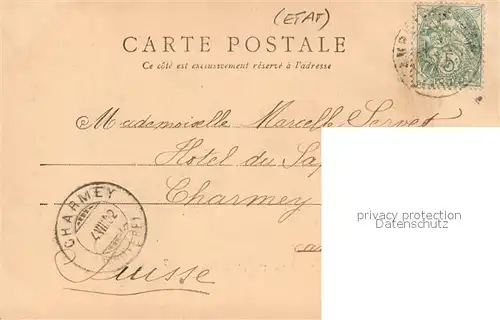 (ETAT)
CARTE POSTALE
Ce côté est exclusivement réservé à l'adresse
Mademoiselle Marcelle Servet
Hotel du Sa
Charmey
Suisse
CHARMEY
4.VIII.02
5
privacy protection